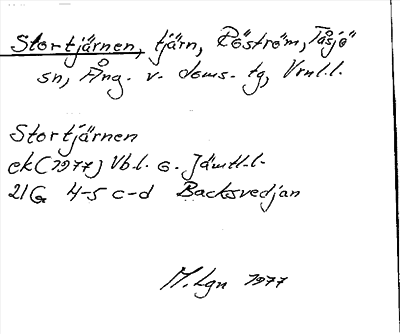 Stortjärnen, tjärn, Röström, Tåsjö
sn, Ång. v. doms. tg, Vrnl.l.
Stortjärnen
ek (1977) Vb.l. o. Jämtl.l.
21G 4-5 c-d Backsvedjan
M. Lgn 1977